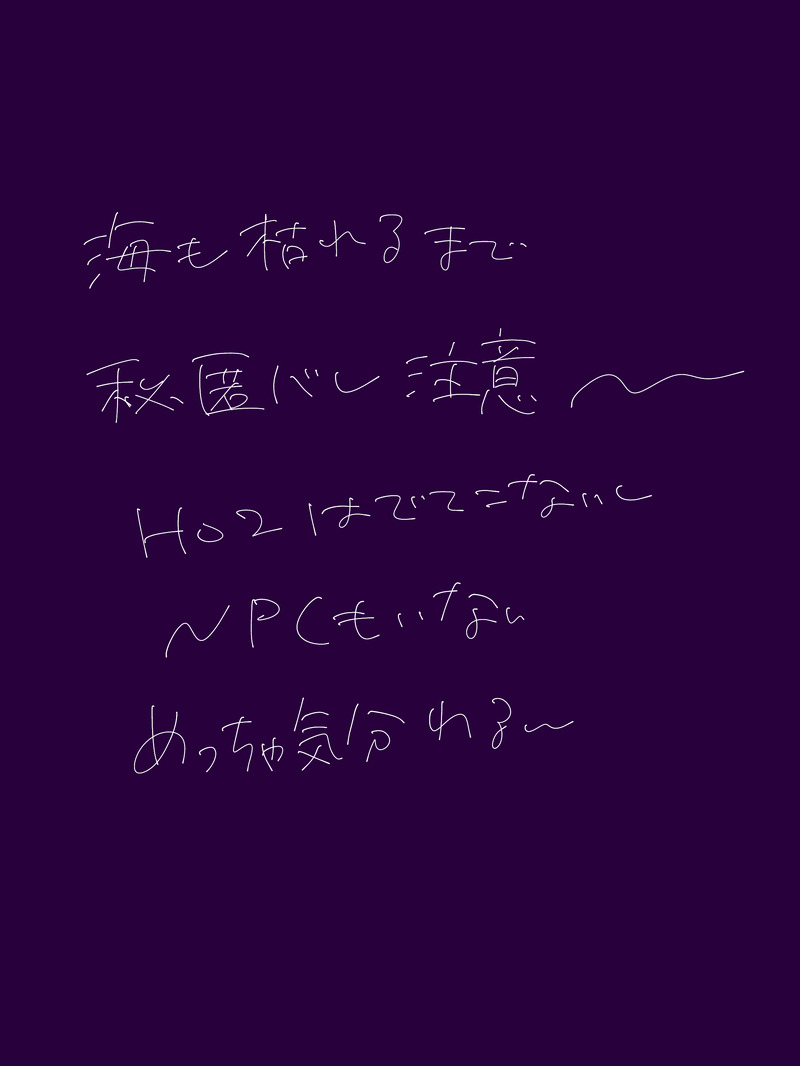 海も枯れるまで
秘匿バレ注意〜
HO2はでてこないし
NPCもいない
めっちゃ気分れる〜